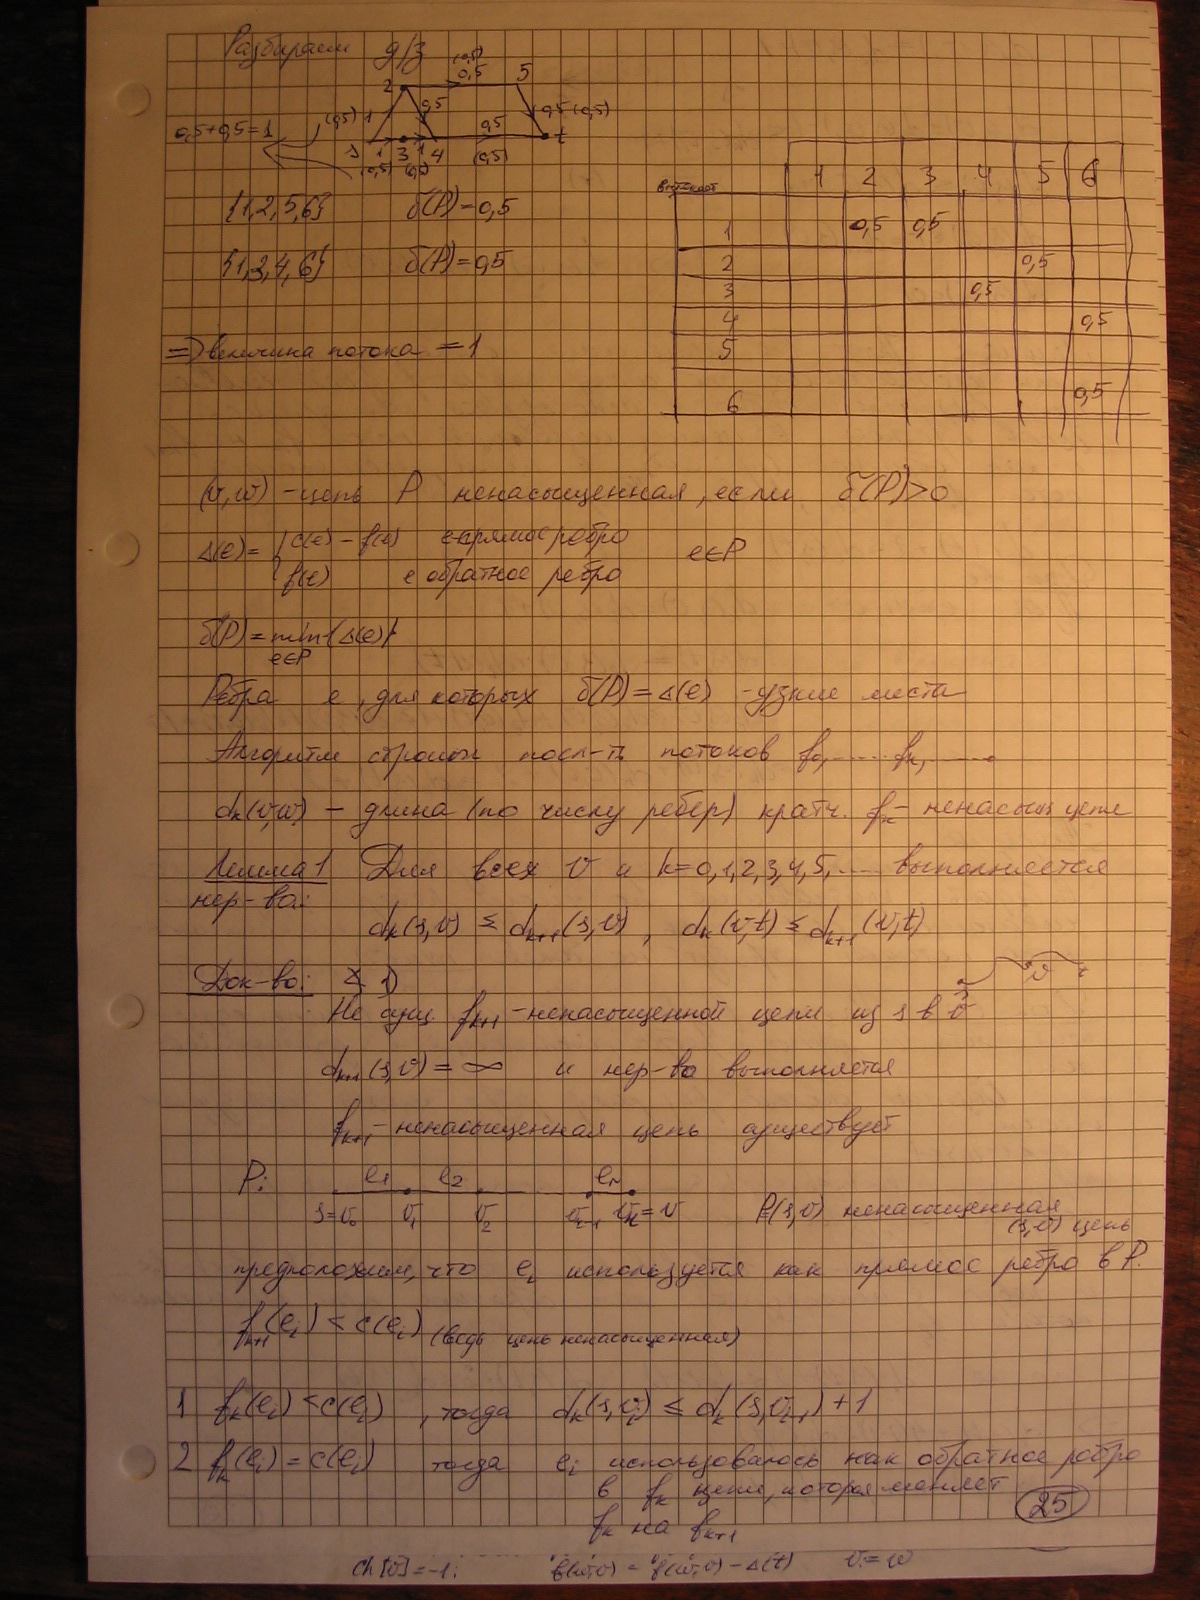 Разбираем д/з
(0,5)
2 0,5 5
(0,5) 1 0,5 0,5 (0,5)
0,5+0,5=1 0,5
s 1 3 1 4 (0,5) t
(0,5) (0,5)
{1,2,5,6} δ(P)=0,5
{1,3,4,6} δ(P)=0,5
=> величина потока = 1
1 2 3 4 5 6
1 0,5 0,5
2 0,5
3 0,5
4 0,5
5
6 0,5
(v,w) - цепь P ненасыщенная, если δ(P)>0
Δ(e)= { c(e) - f(e) e прямое ребро e∈P
f(e) e обратное ребро
δ(P) = min{Δ(e)}
e∈P
Ребра e, для которых δ(P)=Δ(e) - узкие места
Алгоритм строит посл-ть потоков f₀,..... fₖ, ......
dₖ(v,w) - длина (по числу ребер) кратч. fₖ- ненасыщ цепи
Лемма 1 Для всех v и k=0,1,2,3,4,5,.... выполняется
нер-во:
dₖ(s,v) ≤ dₖ₊₁(s,v), dₖ(v,t) ≤ dₖ₊₁(v,t)
Док-во: 1)
Не сущ fₖ₊₁-ненасыщенной цепи из s в v
dₖ₊₁(s,v) = ∞ и нер-во выполняется
fₖ₊₁-ненасыщенная цепь существует
P: e₁ e₂ eₙ
s=v₀ v₁ v₂ =v P(s,v) ненасыщенная
(s,v) цепь
предположим, что eᵢ используется как прямое ребро в P.
fₖ₊₁(eᵢ) < c(eᵢ) (ведь цепь ненасыщенная)
1 fₖ(eᵢ) < c(eᵢ), тогда dₖ(s,vᵢ) ≤ dₖ(s,vᵢ₋₁)+1
2 fₖ(eᵢ) = c(eᵢ) тогда eᵢ использовалось как обратное ребро
в fₖ цепи, которая меняет
fₖ на fₖ₊₁
25
ch[v]=-1; f(w,v) = f(w,v) - Δ(t) v:=w